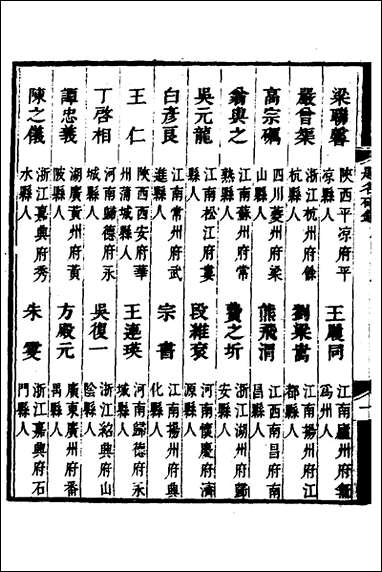 題名碑錄
梁聯馨 陝西平凉府平凉縣人 王履同 江南廬州府無為州人
嚴曾榘 浙江杭州府餘杭縣人 劉梁嵩 江南揚州府江都縣人
高宗礪 四川夔州府梁山縣人 熊飛渭 江西南昌府南昌縣人
翁與之 江南蘇州府常熟縣人 費之圻 浙江湖州府歸安縣人
吳元龍 江南松江府婁縣人 段維袞 河南懷慶府濟源縣人
白彥良 江南常州府武進縣人 宗書 江南揚州府興化縣人
王仁 陝西西安府華州蒲城縣人 王連瑛 河南歸德府永城縣人
丁啓相 河南歸德府永城縣人 吳復一 浙江紹興府山陰縣人
譚忠義 湖廣黃州府黃陂縣人 方殿元 廣東廣州府番禺縣人
陳之儀 浙江嘉興府秀水縣人 朱雯 浙江嘉興府石門縣人